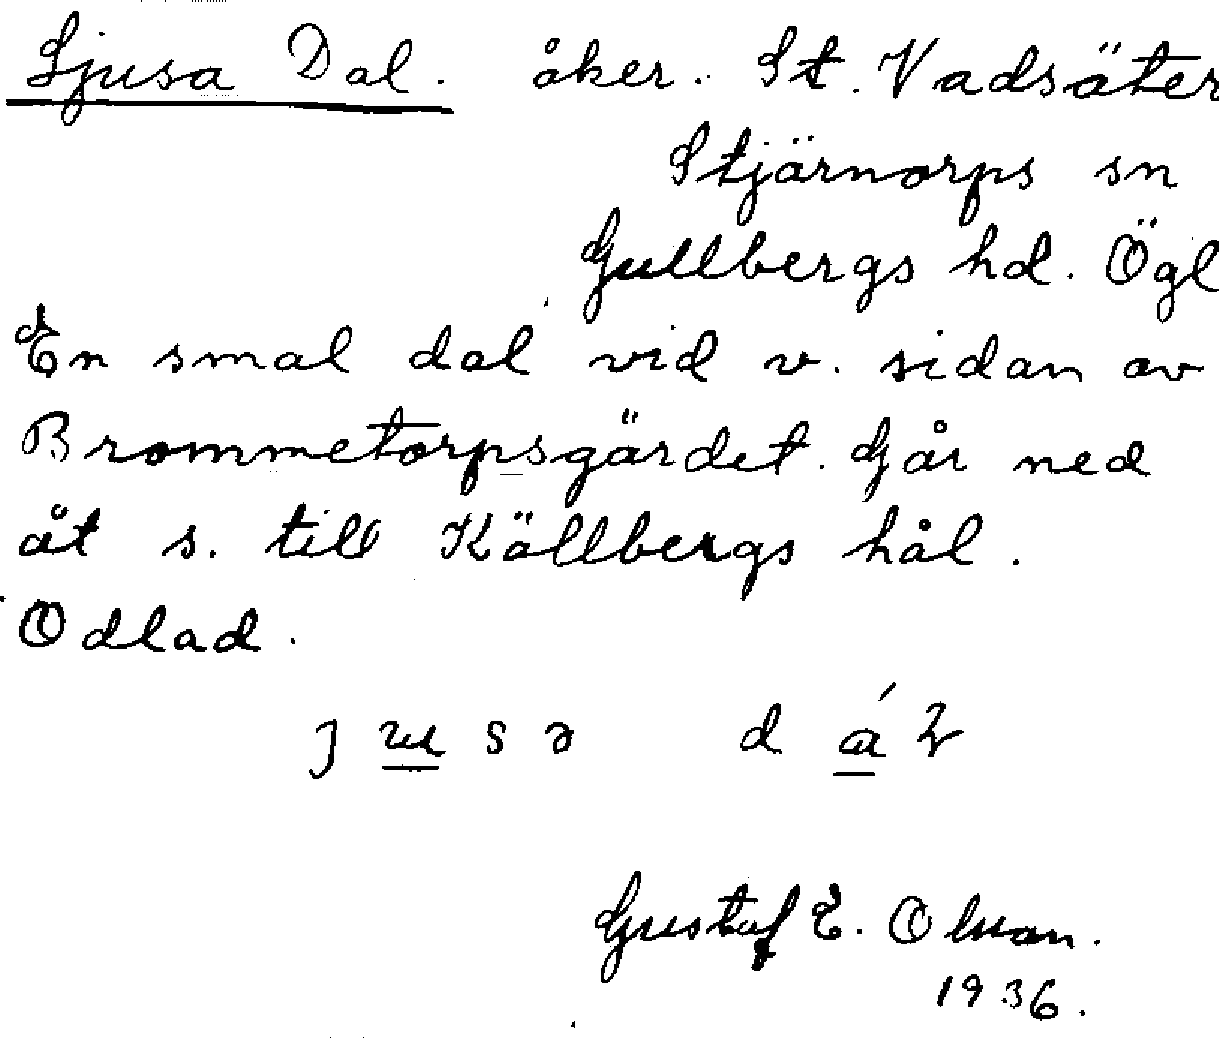 Ljusa Dal. åker. St. Vadsäter
Stjärnorps sn
Gullbergs hd. Ögl
En smal dal vid v. sidan av
Brommetorpsgärdet. Går ned
åt s. till Källbergs hål.
Odlad.
Gustaf E. Olsson.
1936.